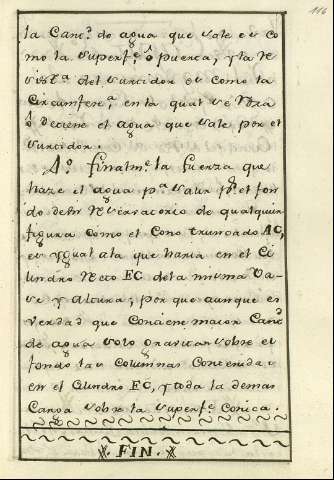 116
la Cant.d de agua que sale es co
mo la superf.e ô puerta, y la Re
sist.a del surtidor es como la
Circumferen.a en la qual se
ô detiene el agua que sale por el
surtidor.
4.o finalm.te la fuerza que
haze el agua p.a salir p.r el fon
do del Reservatorio de qualquier
figura como el Cono truncado AC,
es ygual a la que haria en el Ci
lindro Recto EC de la misma Ba-
se y Altura; por que aunque es
verdad que Contiene maior Cant.d
de agua solo Gravitan sobre el
fondo las Columnas Contenidas
en el Cilindro EC, y toda la demas
Carga sobre la superf.e Conica.
FIN.